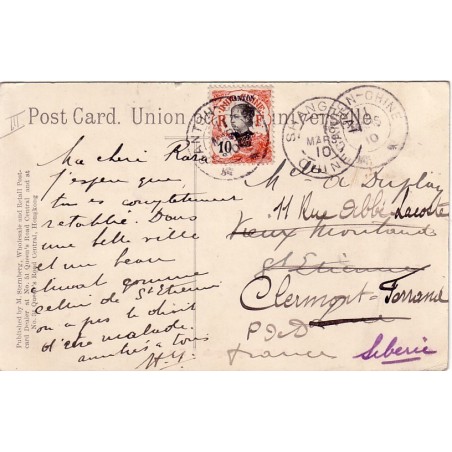 Post Card. Union Universelle
III
Ma chéri Rara
j'espère que
tu es complètement
rétablie. Dans
une belle ville
et un beau
cheval comme
celui de St Etienne
on a pas le droit
d'être malade.
amitiés à tous
H.Y.
CANTON
INDOCHINE
R F
10
SHANG-HAI
CHINE
MARS
10
CHINE
10
A Duplay
11 Rue Abbé Lacoste
Vieux Montaud
St Etienne
Clermont-Ferrand
P de D
Loire
France
Siberie
Published by M. Sternberg, Wholesale and Retail Post-
card Dealer at No. 51 Queen's Road Central and at
Queen's Road Central, Hongkong